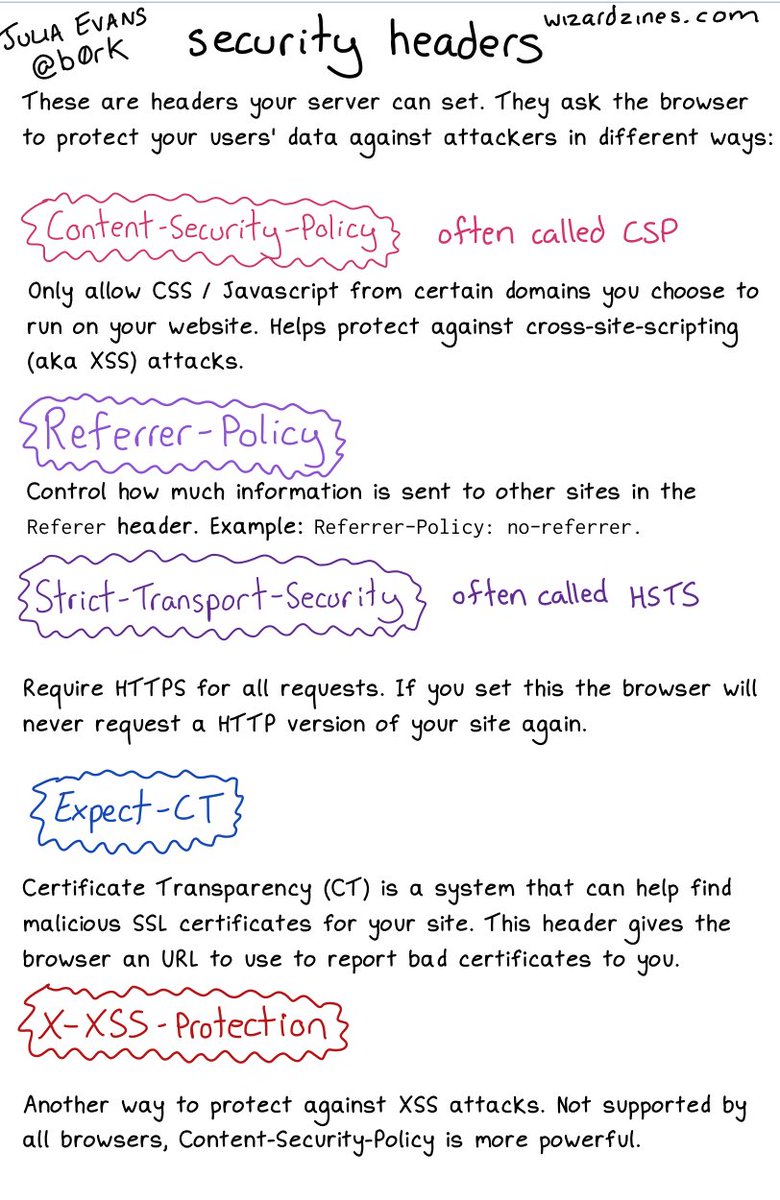 JULIA EVANS
@b0rk
security headers
wizardzines.com
These are headers your server can set. They ask the browser
to protect your users' data against attackers in different ways:
Content-Security-Policy often called CSP
Only allow CSS / Javascript from certain domains you choose to
run on your website. Helps protect against cross-site-scripting
(aka XSS) attacks.
Referrer-Policy
Control how much information is sent to other sites in the
Referer header. Example: Referrer-Policy: no-referrer.
Strict-Transport-Security often called HSTS
Require HTTPS for all requests. If you set this the browser will
never request a HTTP version of your site again.
Expect-CT
Certificate Transparency (CT) is a system that can help find
malicious SSL certificates for your site. This header gives the
browser an URL to use to report bad certificates to you.
X-XSS-Protection
Another way to protect against XSS attacks. Not supported by
all browsers, Content-Security-Policy is more powerful.